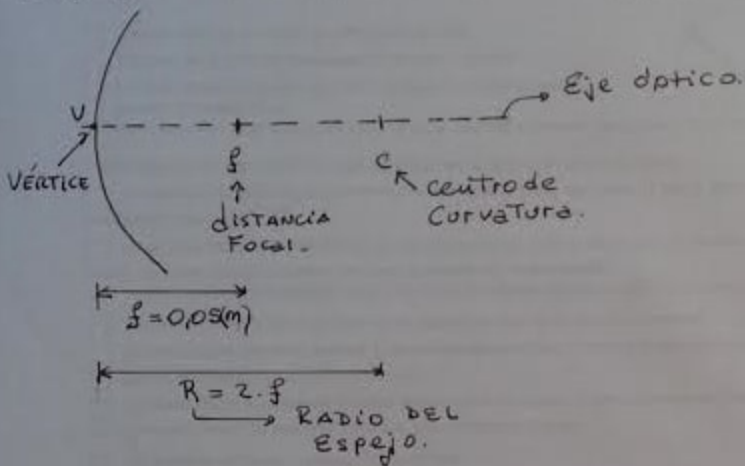 Eje óptico.
V
VÉRTICE
f
C
distancia
Focal.
centro de
Curvatura.
f = 0,05(m)
R = 2.f
RADIO DEL
Espejo.